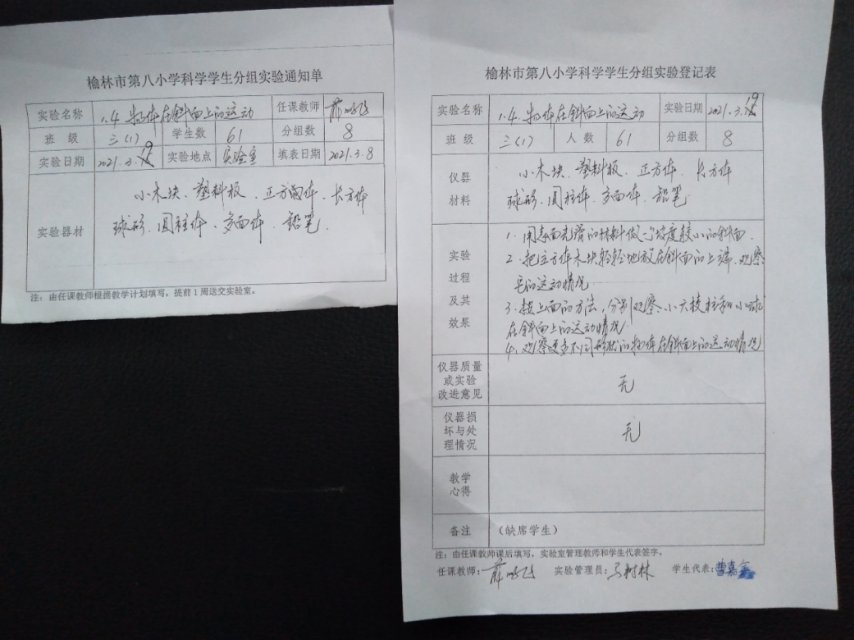 榆林市第八小学科学学生分组实验通知单
实验名称 1.4 物体在斜面上的运动 任课教师
班 级 三(1) 学生数 61 分组数 8
实验日期 2021.3.19 实验地点 实验室 填表日期 2021.3.8
实验器材
小木块、塑料板、正方体、长方体
球形、圆柱体、多面体、铅笔.
注：由任课教师根据教学计划填写，提前1周送交实验室。
榆林市第八小学科学学生分组实验登记表
实验名称 1.4 物体在斜面上的运动 实验日期 2021.3.19
班 级 三(1) 人 数 61 分组数 8
仪器
材料
小木块、塑料板、正方体、长方体
球形、圆柱体、多面体、铅笔
实验
过程
及其
效果
1. 用表面光滑的材料做一个坡度较小的斜面.
2. 把立方体木块轻轻地放在斜面的上端,观察
它的运动情况
3. 按上面的方法,分别观察、小六棱柱和小球
在斜面上的运动情况
4. 观察更多不同形状的物体在斜面上的运动情况
仪器质量
或实验
改进意见
无
仪器损
坏与处
理情况
无
教学
心得
备注 （缺席学生）
注：由任课教师课后填写，实验室管理教师和学生代表签字。
任课教师： 实验管理员：马树林 学生代表：